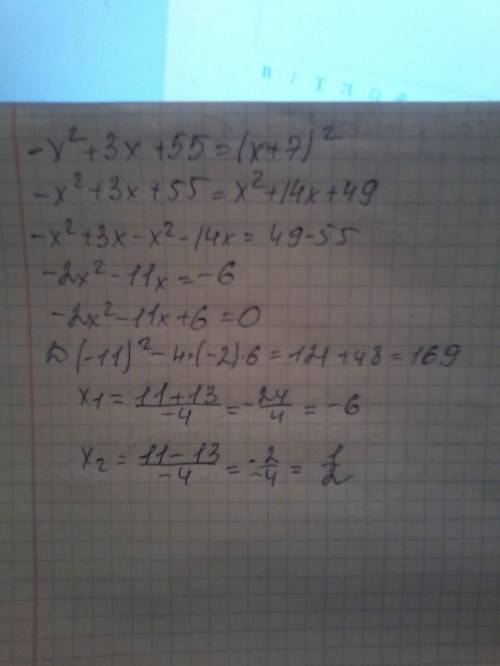 -x² + 3x + 55 = (x+7)²
-x² + 3x + 55 = x² + 14x + 49
-x² + 3x - x² - 14x = 49 - 55
-2x² - 11x = -6
-2x² - 11x + 6 = 0
D (-11)² - 4·(-2)·6 = 121 + 48 = 169
x₁ = (11+13)/(-4) = -24/4 = -6
x₂ = (11-13)/(-4) = (-2)/(-4) = 1/2